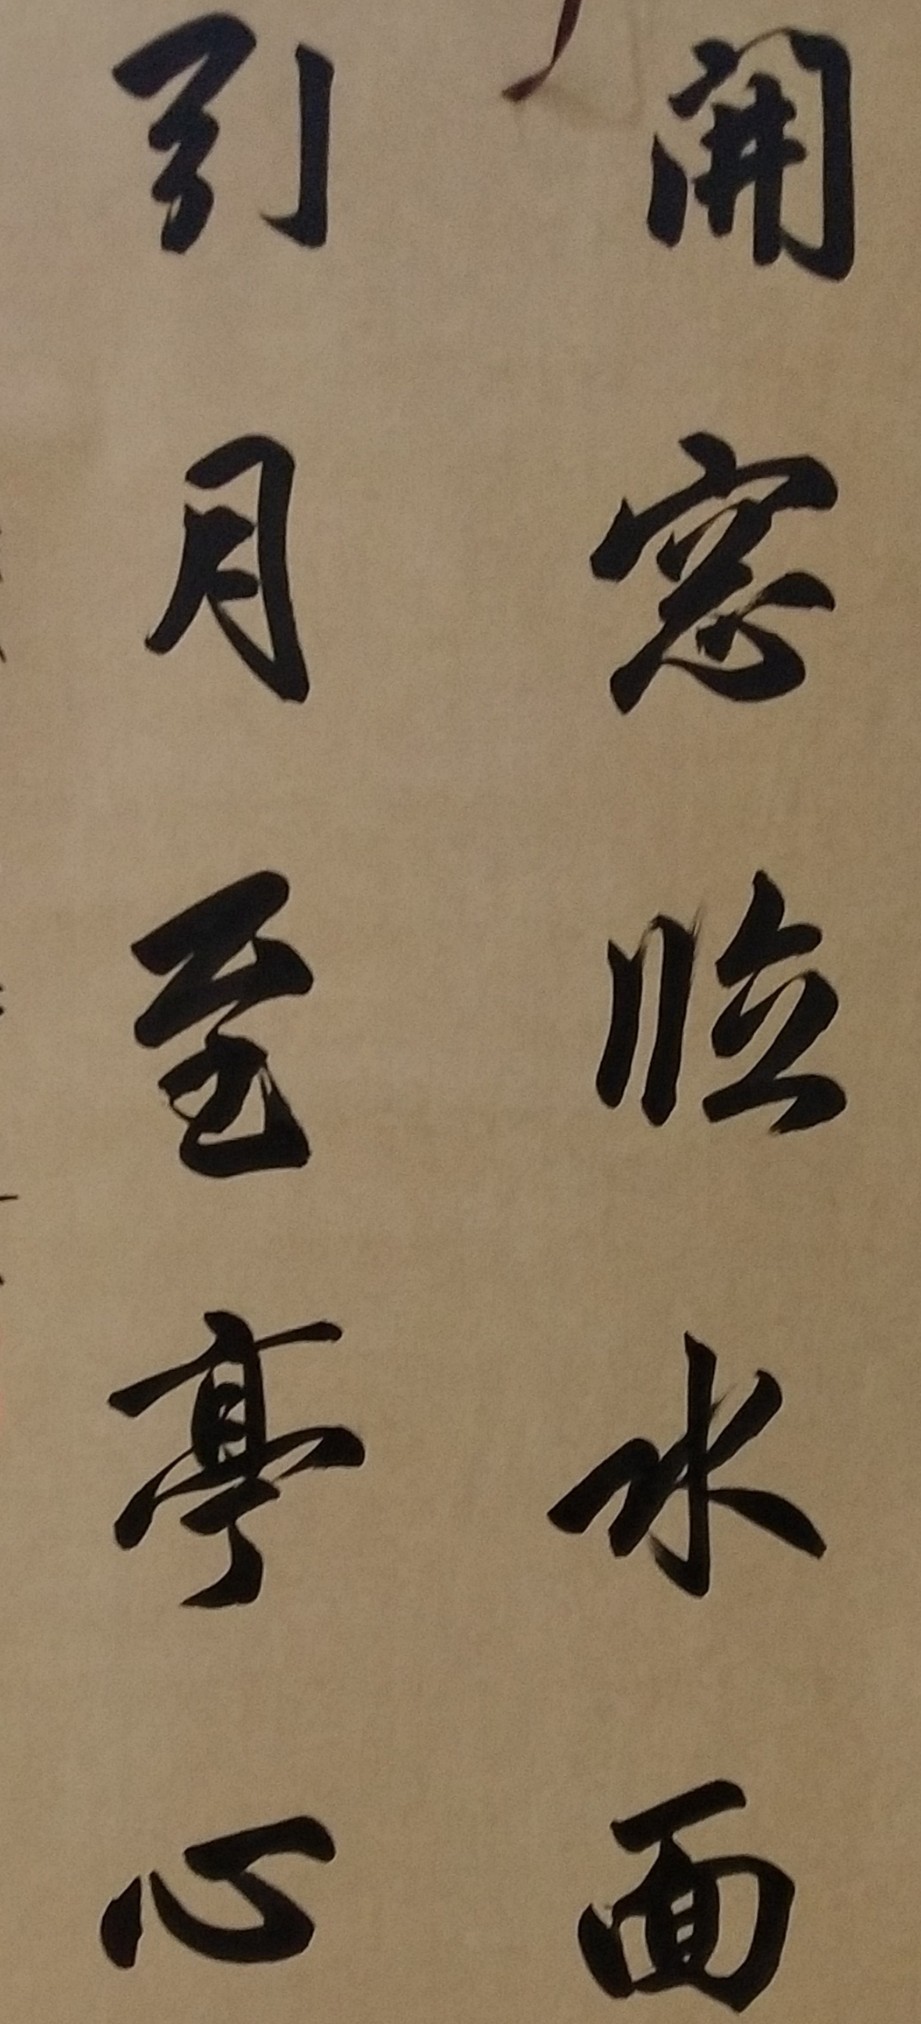 開窓臨水面
引月至亭心